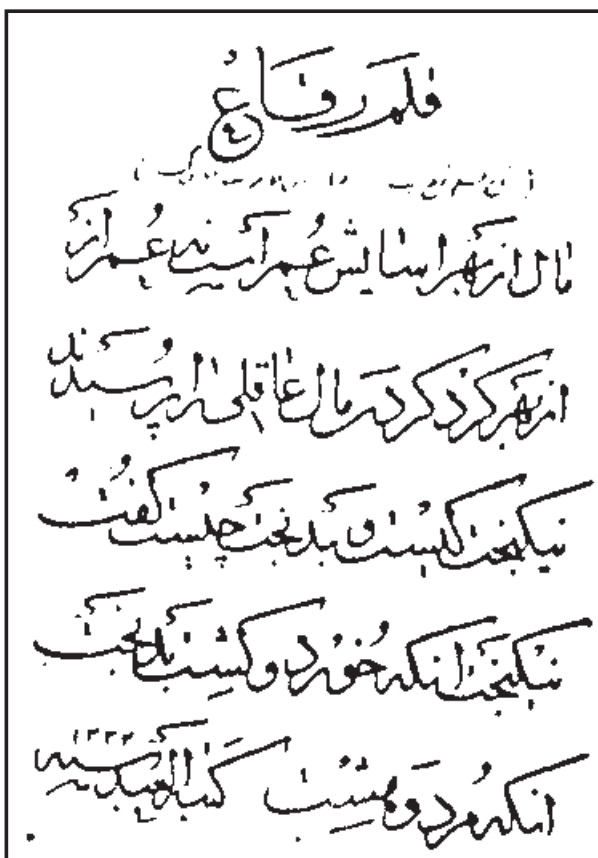 قلم رقاع
مال از بهر اسایش عمر است نه عمر از
از بهر کرد کردن مال عاقلی را پرسیدند
نیکبخت کیست و بدبخت چیست گفت
نیکبخت انکه خورد و کشت بدبخت
انکه مرد و هشت کتبه العبد ۱۳۳۲